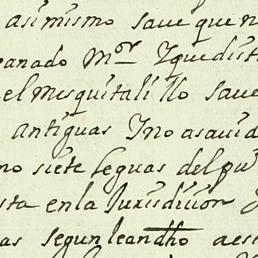 asimismo save que n
eanado Mor Y quedist
el mesquitalillo save
antiguas Y no asavid
no siete leguas del qu
sta enla Jurisdicion
as segun leandho aes